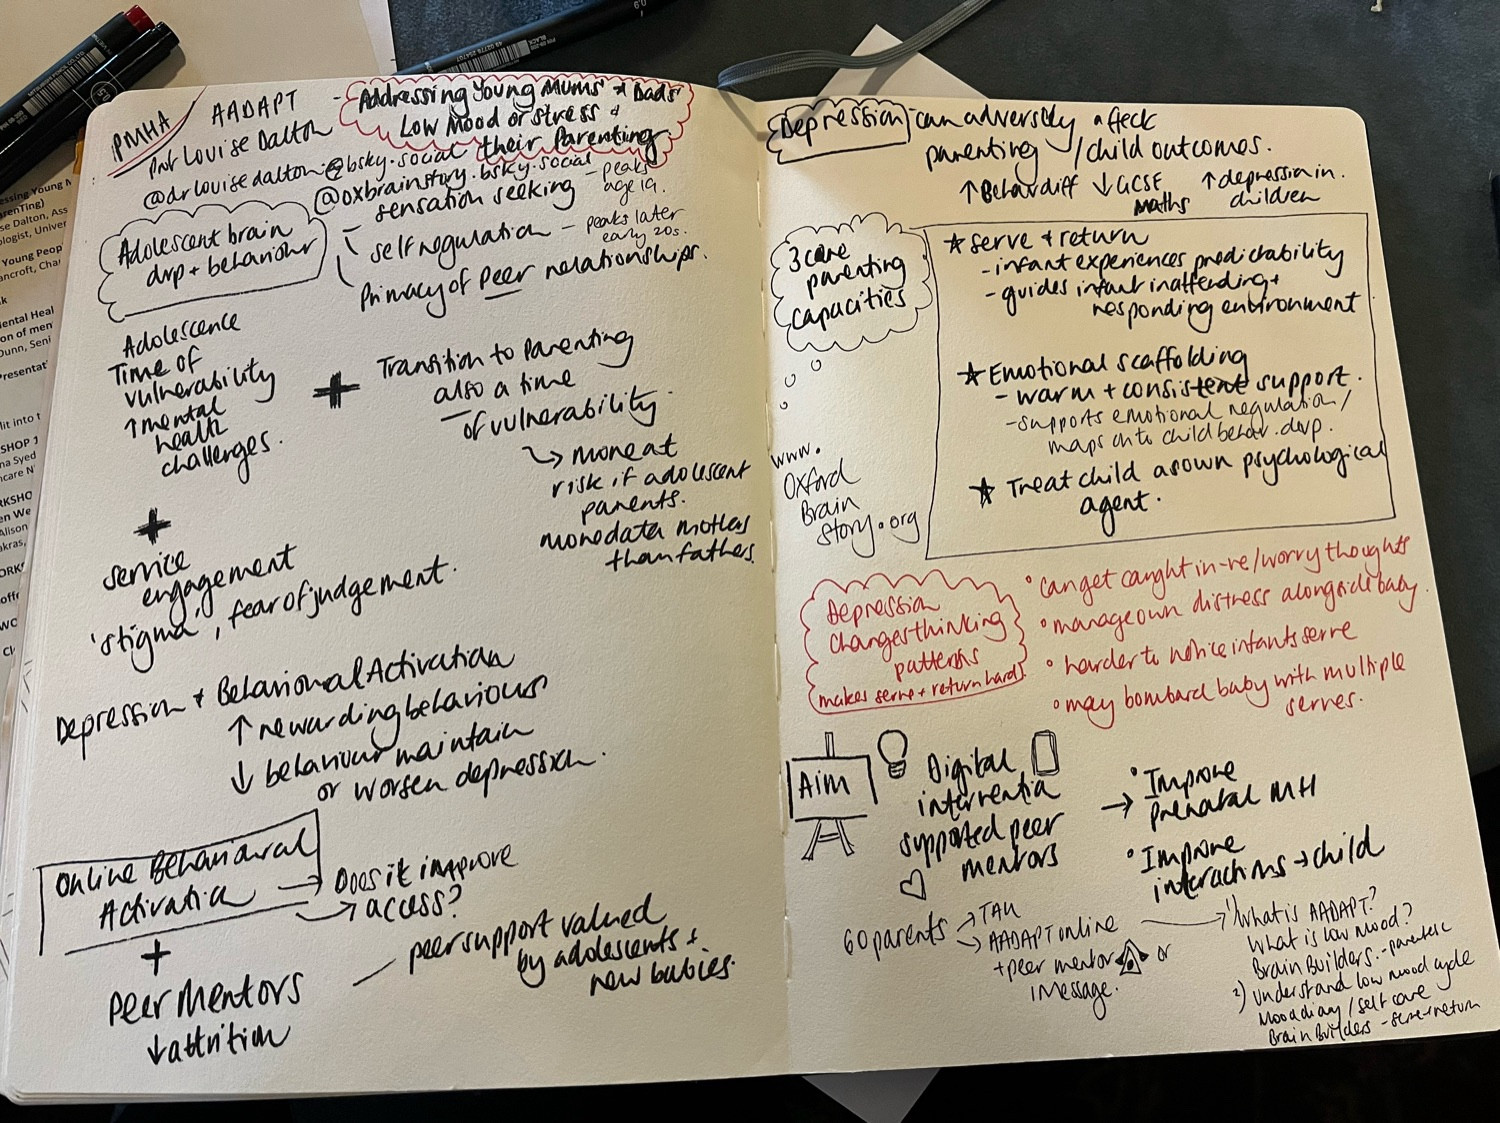 PMHA
AADAPT
- Addressing Young Mums + Dads'
Low Mood or Stress +
their Parenting
Prof Louise Dalton
@drlouisedalton@bsky.social
@oxbrainstory.bsky.social
Adolescent brain
dvp + behaviour
sensation seeking - peaks
age 19.
self regulation - peaks later
early 20s.
Primacy of Peer relationships.
Adolescence
Time of
vulnerability
↑ mental
health
challenges.
+
Transition to Parenting
also a time
of vulnerability.
↳ more at
risk if adolescent
parents.
more data mothers
than fathers.
+
service
engagement
'stigma', fear of judgement.
Depression + Behavioural Activation
↑ rewarding behaviours
↓ behaviour maintain
or worsen depression.
Online Behavioural
Activation
→ Does it improve
→ access?
+
Peer Mentors
↓ attrition
peer support valued
by adolescents +
new babies.
Depression can adversely affect
parenting / child outcomes.
↑ Behav diff ↓ GCSE
Maths
↑ depression in
children
3 core
parenting
capacities
www.
Oxford
Brain
Story.org
★ Serve + return
- infant experiences predictability
- guides infant in attending +
responding environment
★ Emotional scaffolding
- warm + consistent support.
- supports emotional regulation /
maps onto child behav. dvp.
★ Treat child as own psychological
agent.
Depression
changes thinking
patterns
makes serve + return hard
• can get caught in -ve/worry thoughts
• manage own distress alongside baby.
• harder to notice infants serve
• may bombard baby with multiple
serves.
Aim
Digital
intervention
supported peer
mentors
→ • Improve
prenatal MH
• Improve
interactions → child
60 parents → TAU
→ AADAPT online
+ peer mentor or
iMessage.
1) What is AADAPT?
What is low mood?
Brain Builders -
2) Understand low mood cycle
Mood diary / self care
Brain Builders - serve + return
0.5
PIN 09-200
BLACK
0.9
essing Young M
arenTing)
se Dalton, Ass
ologist, Univer
Young Peop
ancroft, Cha
ental Heal
on of men
Dunn, Seni
resentat
lit into t
SHOP 1
na Syed
ncare N
RKSHO
en We
Alison
akras,